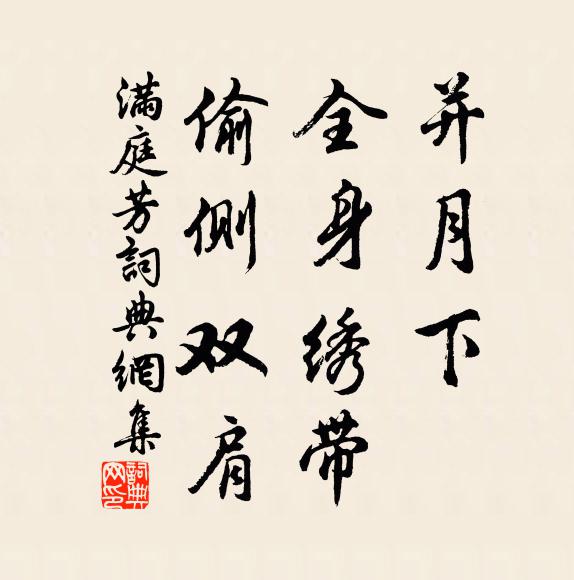 并月下
全身绣带
偷侧双肩
满庭芳詞典網集
詞典
网印